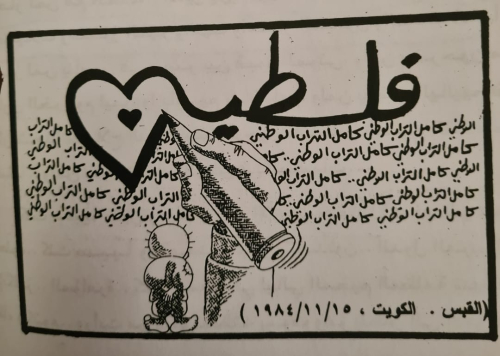 فلسطين
الوطني كامل التراب الوطني كامل التراب الوطني كامل التراب
كامل التراب الوطني كامل التراب الوطني .. كامل التراب الوطني
كامل التراب الوطني .. كامل التراب الوطني كامل التراب الوطني
كامل التراب الوطني كامل التراب الوطني .. كامل التراب الوطني
كامل التراب الوطني كامل التراب الوطني كامل التراب الوطني كامل التراب الوطني
(القبس . الكويت ، ١٩٨٤/١١/١٥)